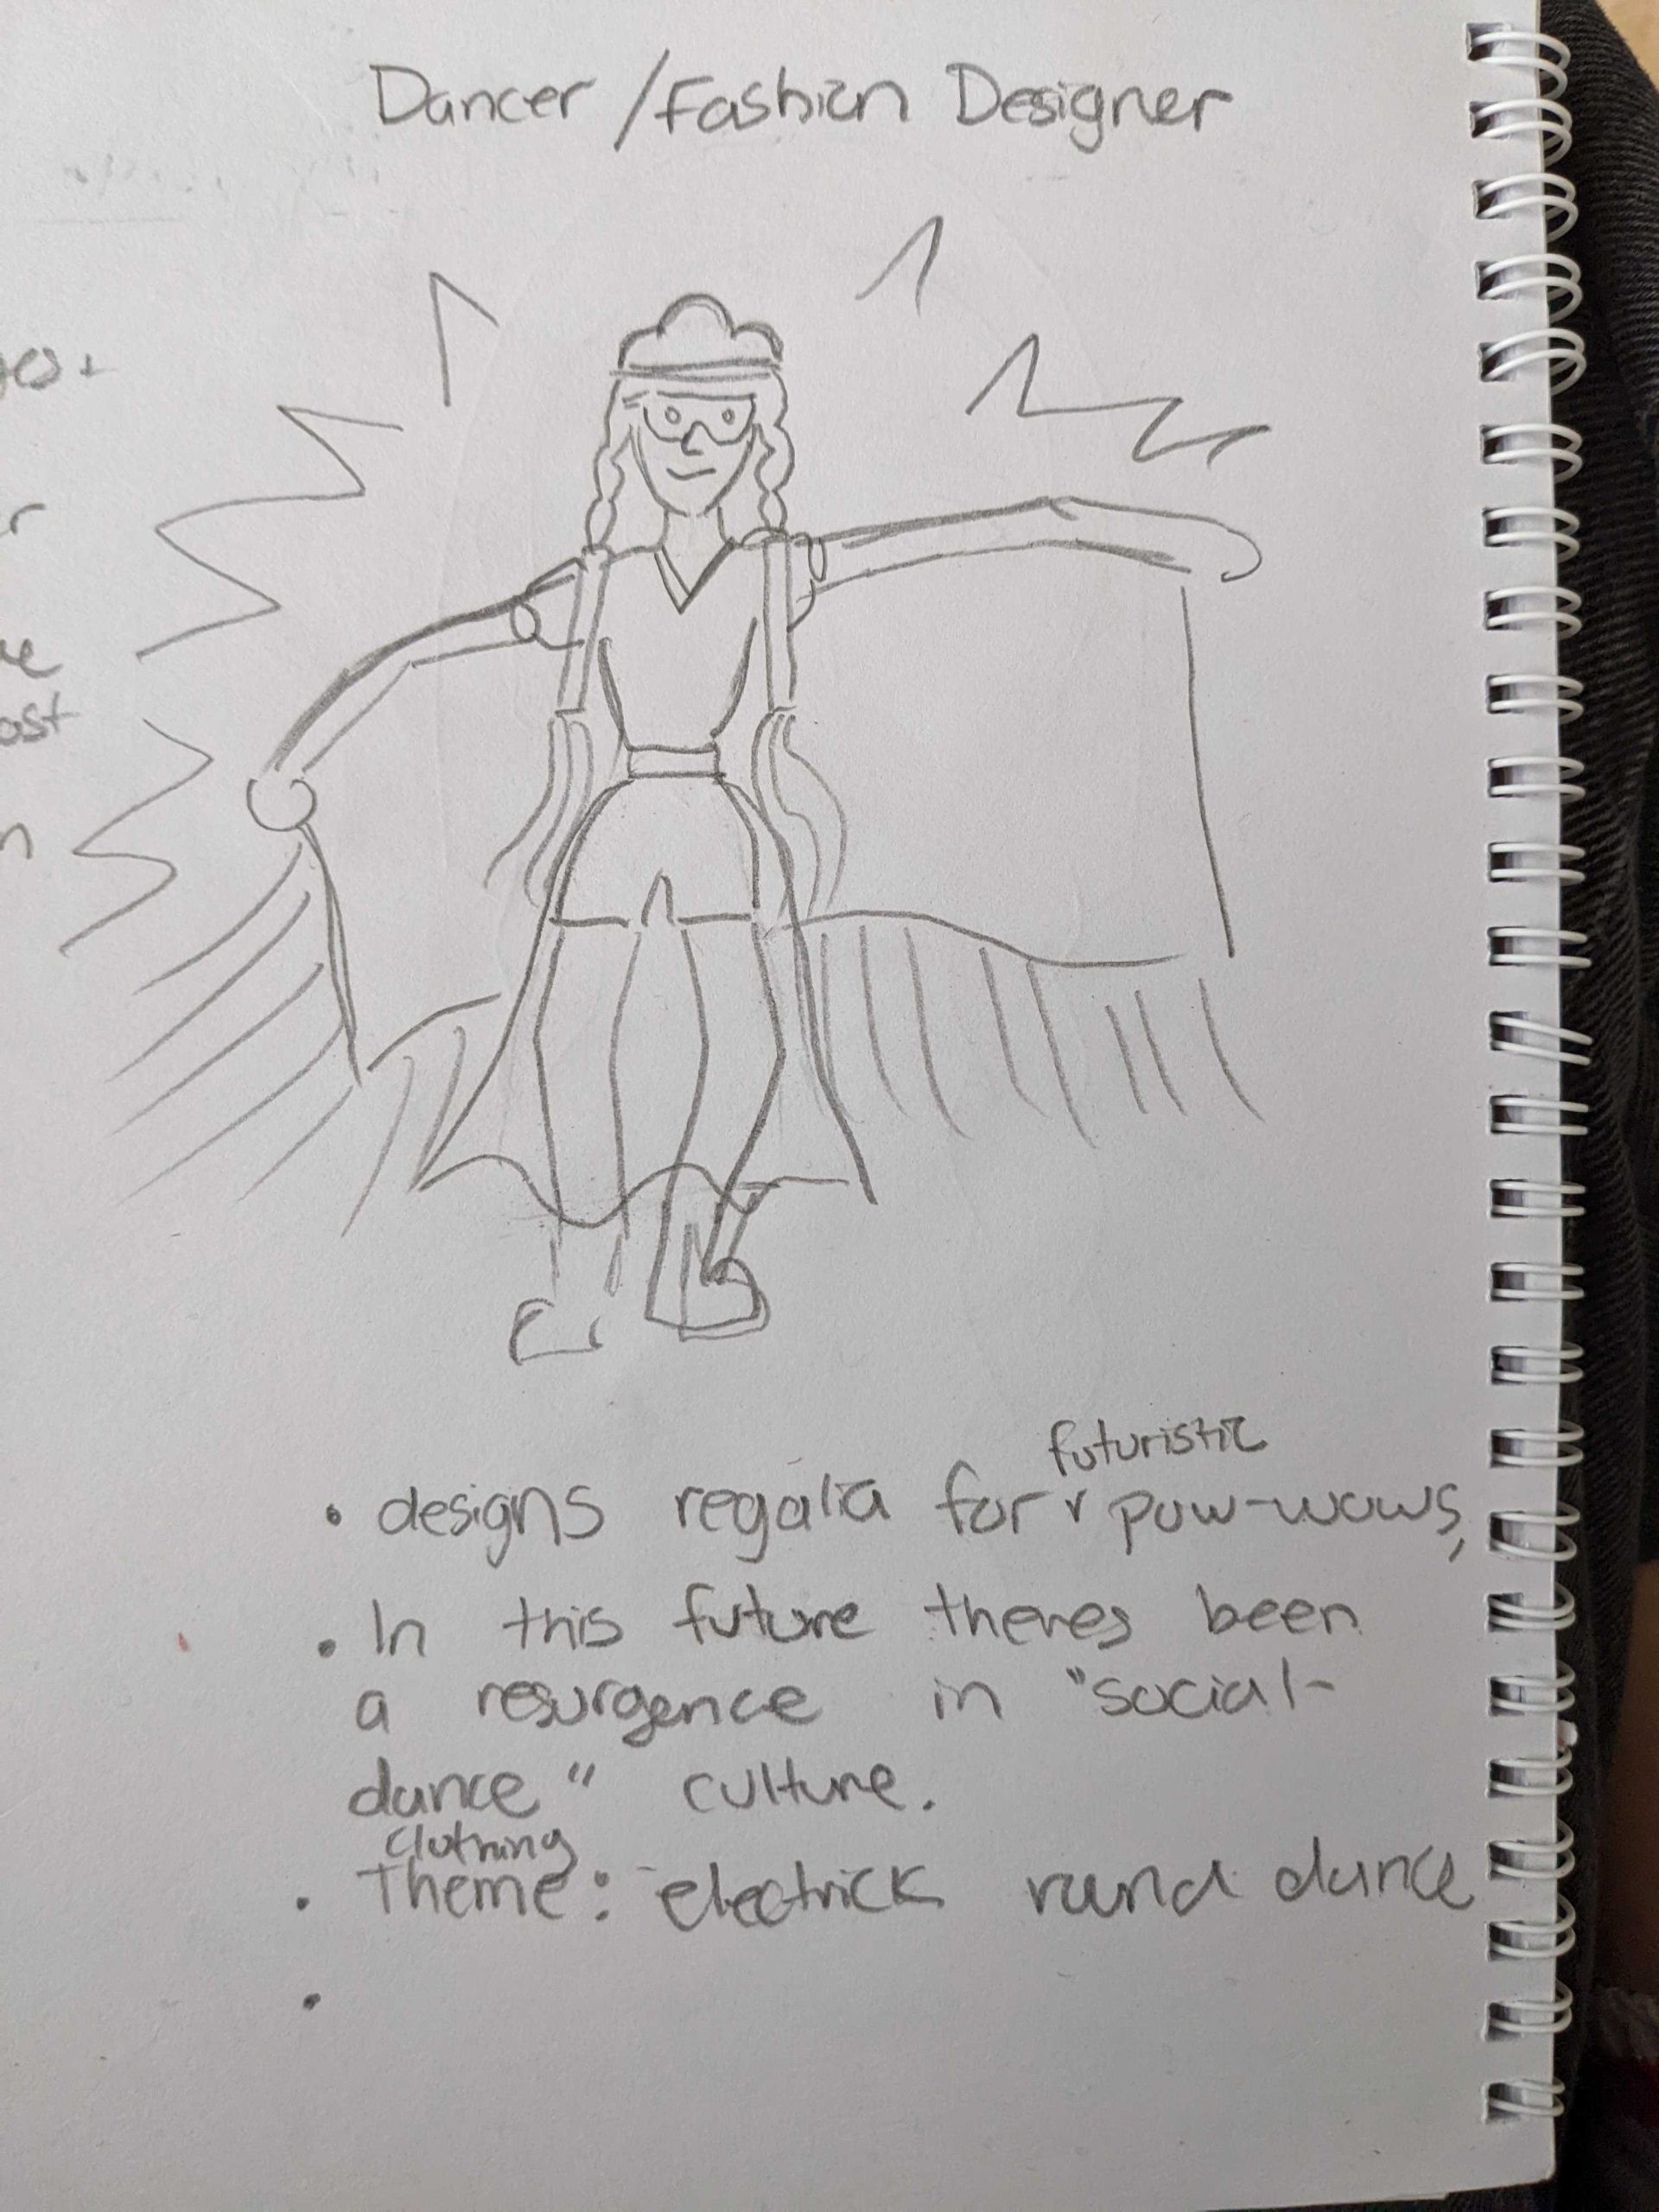 Dancer / Fashion Designer
futuristic
• designs regalia for v pow-wows,
• In this future theres been
a resurgence in "social-
dance" culture.
Clothing
• Theme: electrick round dance
•